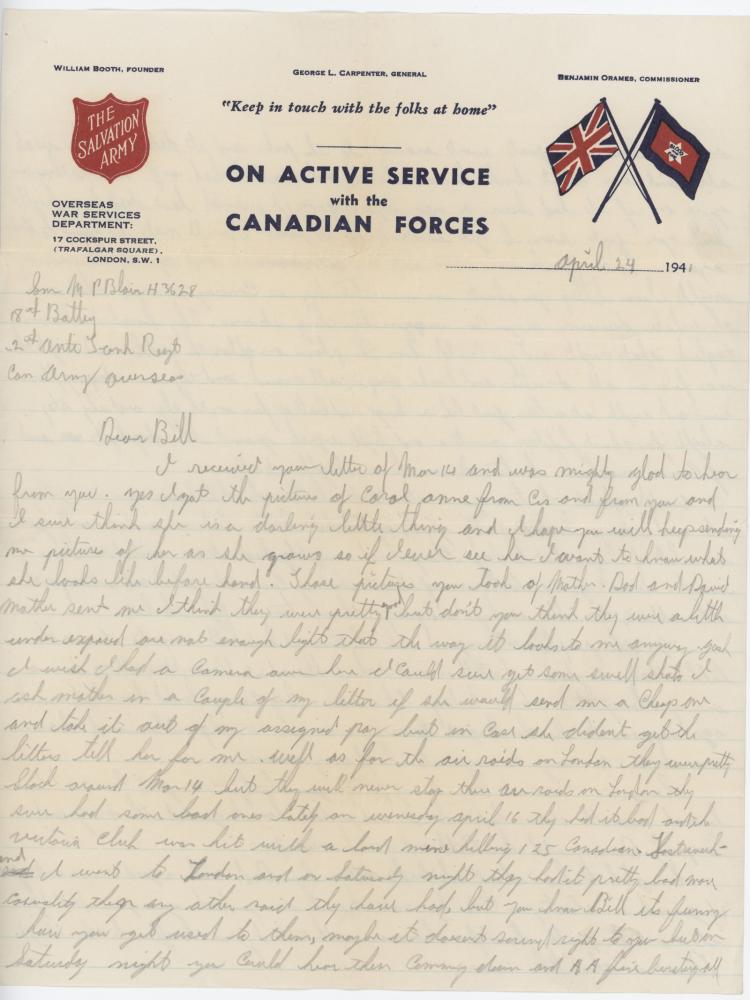 WILLIAM BOOTH, FOUNDER
GEORGE L. CARPENTER, GENERAL
BENJAMIN ORAMES, COMMISSIONER
"Keep in touch with the folks at home"
THE
SALVATION
ARMY
ON ACTIVE SERVICE
with the
CANADIAN FORCES
OVERSEAS
WAR SERVICES
DEPARTMENT:
17 COCKSPUR STREET,
(TRAFALGAR SQUARE),
LONDON, S.W. 1
april 24 1941
M P Blair H 3628
18 Battey
2 Anti Tank Regt
Can Army overseas
Dear Bill
I received your letter of Mar 14 and was mighty glad to hear
from you. yes I got the pictures of Carol anne from Cis and from you and
I sure think she is a darling little thing and I hope you will keep sending
me pictures of her as she grows so if I ever see her I want to know what
she looks like before hand. Those pictures you took of Mother. Dad and David
Mother sent me I think they were pretty but don't you think they were a little
under exposed are not enough light thats the way it looks to me anyway. gosh
I wish I had a Camera over here I Could sure get some swell shots I
ask mother in a Couple of my letter if she would send me a Cheap one
and take it out of my assigned pay but in Case she dident get the
letters tell her for me. well as for the air raids on London they were pretty
black around Mar 14 but they will never stop there air raids on London they
sure had some bad ones lately on wenesday april 16 they had it bad and the
victoria Club was hit with a land mine killing 125 Canadians Last week-
end I went to London and on Saturday night they had it pretty bad more
casuality then any other raid they have had, but you know Bill its funny
how you get used to them, maybe it doesent sound right to you but on
Saturday night you Could hear them Comming down and AA fire bursting all